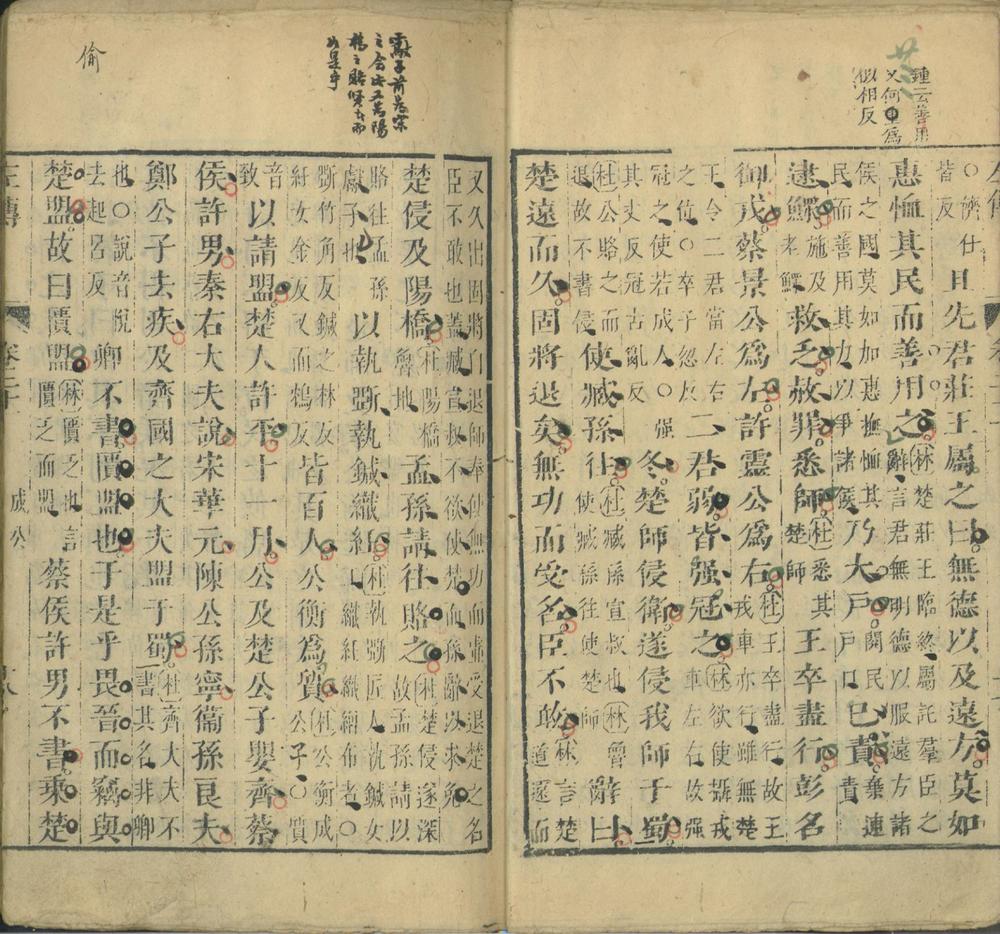 鍾云善用
又何爲
似相反
〇濟仕皆反且先君莊王屬之曰無德以及遠方莫如
惠恤其民而善用之林楚莊王臨終屬託羣臣之辭言君無明德以服遠方諸
侯之國莫如加惠撫恤其民而善用其力以爭諸侯乃大戶閱民戶口已責棄逋責
逮鰥施及老鰥救乏赦罪悉師杜悉其楚師王卒盡行彭名
御戎蔡景公爲左許靈公爲右杜王卒盡行故王戎車亦行雖無楚
王令二君當左右之位〇卒子忽反二君弱皆强冠之林欲使攝戎車左右故强
冠之使若成人〇强其丈反冠古亂反冬楚師侵衛遂侵我師于蜀
杜公賂之而退故不書侵使臧孫往杜臧孫宣叔也林魯使臧孫往使楚師辭曰
楚遠而久固將退矣無功而受名臣不敢林言楚道遠而
偷
又久出固將自退師奉使無功而虛受退楚之名臣不敢也蓋臧宣叔不欲使楚而孫辭以求免
楚侵及陽橋杜陽橋魯地孟孫請往賂之杜楚侵遂深故孟孫請以
賂往孟孫獻子也以執斲執鍼織紝杜執斲匠人執鍼女工織紝織繒布者〇
斲竹角反鍼之林反紝女金反又而鴆反皆百人公衡爲質杜公衡成公子〇質
音致以請盟楚人許平十一月公及楚公子嬰齊蔡
侯許男秦右大夫說宋華元陳公孫寧衛孫良夫
鄭公子去疾及齊國之大夫盟于蜀杜齊大夫不書其名非卿
也〇說音悅去起呂反卿不書匱盟也于是乎畏晉而竊與
楚盟故曰匱盟林匱乏也言匱乏而盟蔡侯許男不書乘楚
左傳 成公